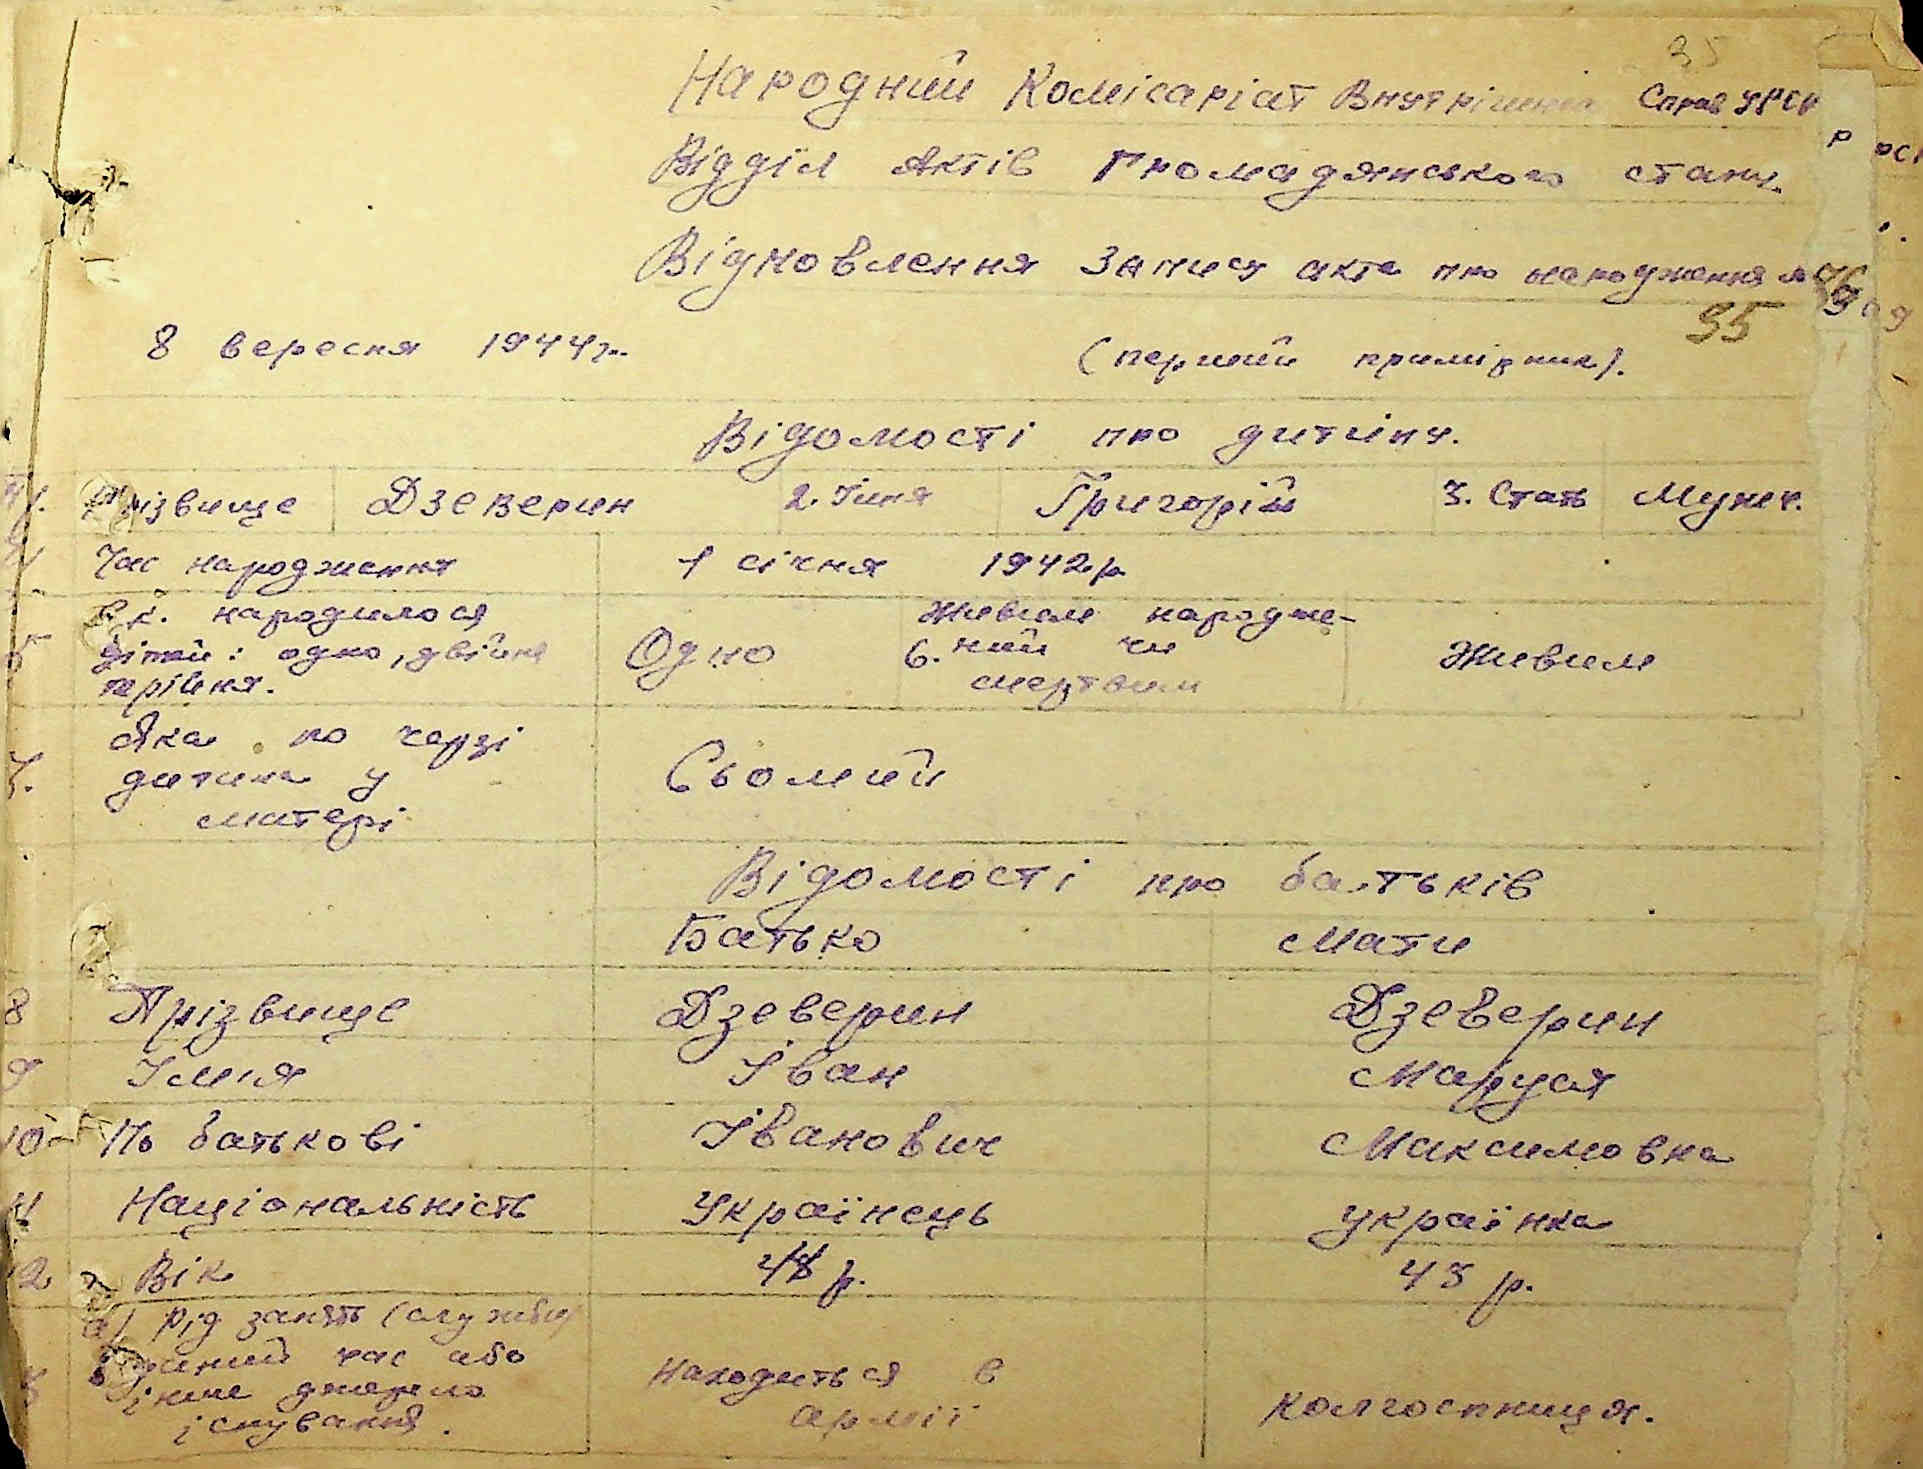 35
Народний Комісаріат Внутрішніх Справ УРСР
Відділ Актів Громадянського стану.
Відновлення Запису акта про народження №
35
8 вересня 1944 р. (перший примірник).
Відомості про дитину.
1. Прізвище Дзеверин 2. Імня Григорій 3. Стать Мужч.
Час народження 1 січня 1942 р.
5 Ск. народилося дітей: одно, двійня трійня. Одно 6. Живим народже-ний чи мертвим Живим
7. Яка по черзі дитина у матері Сьомий
Відомості про батьків
Батько Мати
8 Прізвище Дзеверин Дзеверин
9 Імія Іван Маруся
10 По батькові Іванович Максимовна
11 Національність Українець українка
12 Вік 48 р. 43 р.
а) Рід занять (служби
час або
інше джерело
існування. находиться в армії колгоспниця.